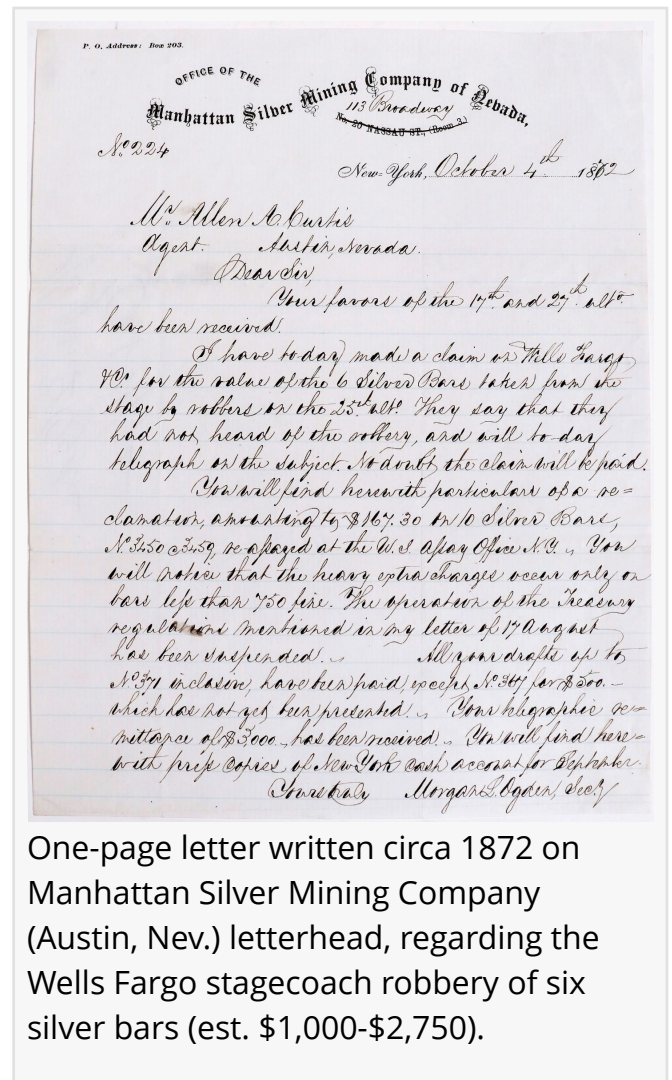 P. O. Address: Box 203.
OFFICE OF THE
Manhattan Silver Mining Company of Nevada,
113 Broadway
No. 20 NASSAU ST., (Room 3.)
No. 224
New-York, October 4th 1872
Mr. Allen A. Curtis
Agent. Austin, Nevada.
Dear Sir,
Your favors of the 17th and 27th ulto
have been received.
I have to-day made a claim on Wells Fargo
&Co. for the value of the 6 Silver Bars taken from the
stage by robbers on the 25th ulto. They say that they
had not heard of the robbery, and will to-day
telegraph on the subject. No doubt the claim will be paid.
You will find herewith particulars of a re=
clamation, amounting to $167.30 on 10 Silver Bars,
No. 3450 @ 3459, re-assayed at the U.S. Assay Office N.Y. You
will notice that the heavy extra charges occur only on
bars less than 750 fine. The operation of the Treasury
regulations mentioned in my letter of 17 August
has been suspended. All your drafts up to
No. 371 inclusive, have been paid, except No. 367 for $500.-
which has not yet been presented. Your telegraphic re=
mittance of $3,000. has been received. You will find here=
with press copies of New York cash account for September.
Yours truly Morgan L. Ogden, Secy
One-page letter written circa 1872 on
Manhattan Silver Mining Company
(Austin, Nev.) letterhead, regarding the
Wells Fargo stagecoach robbery of six
silver bars (est. $1,000-$2,750).